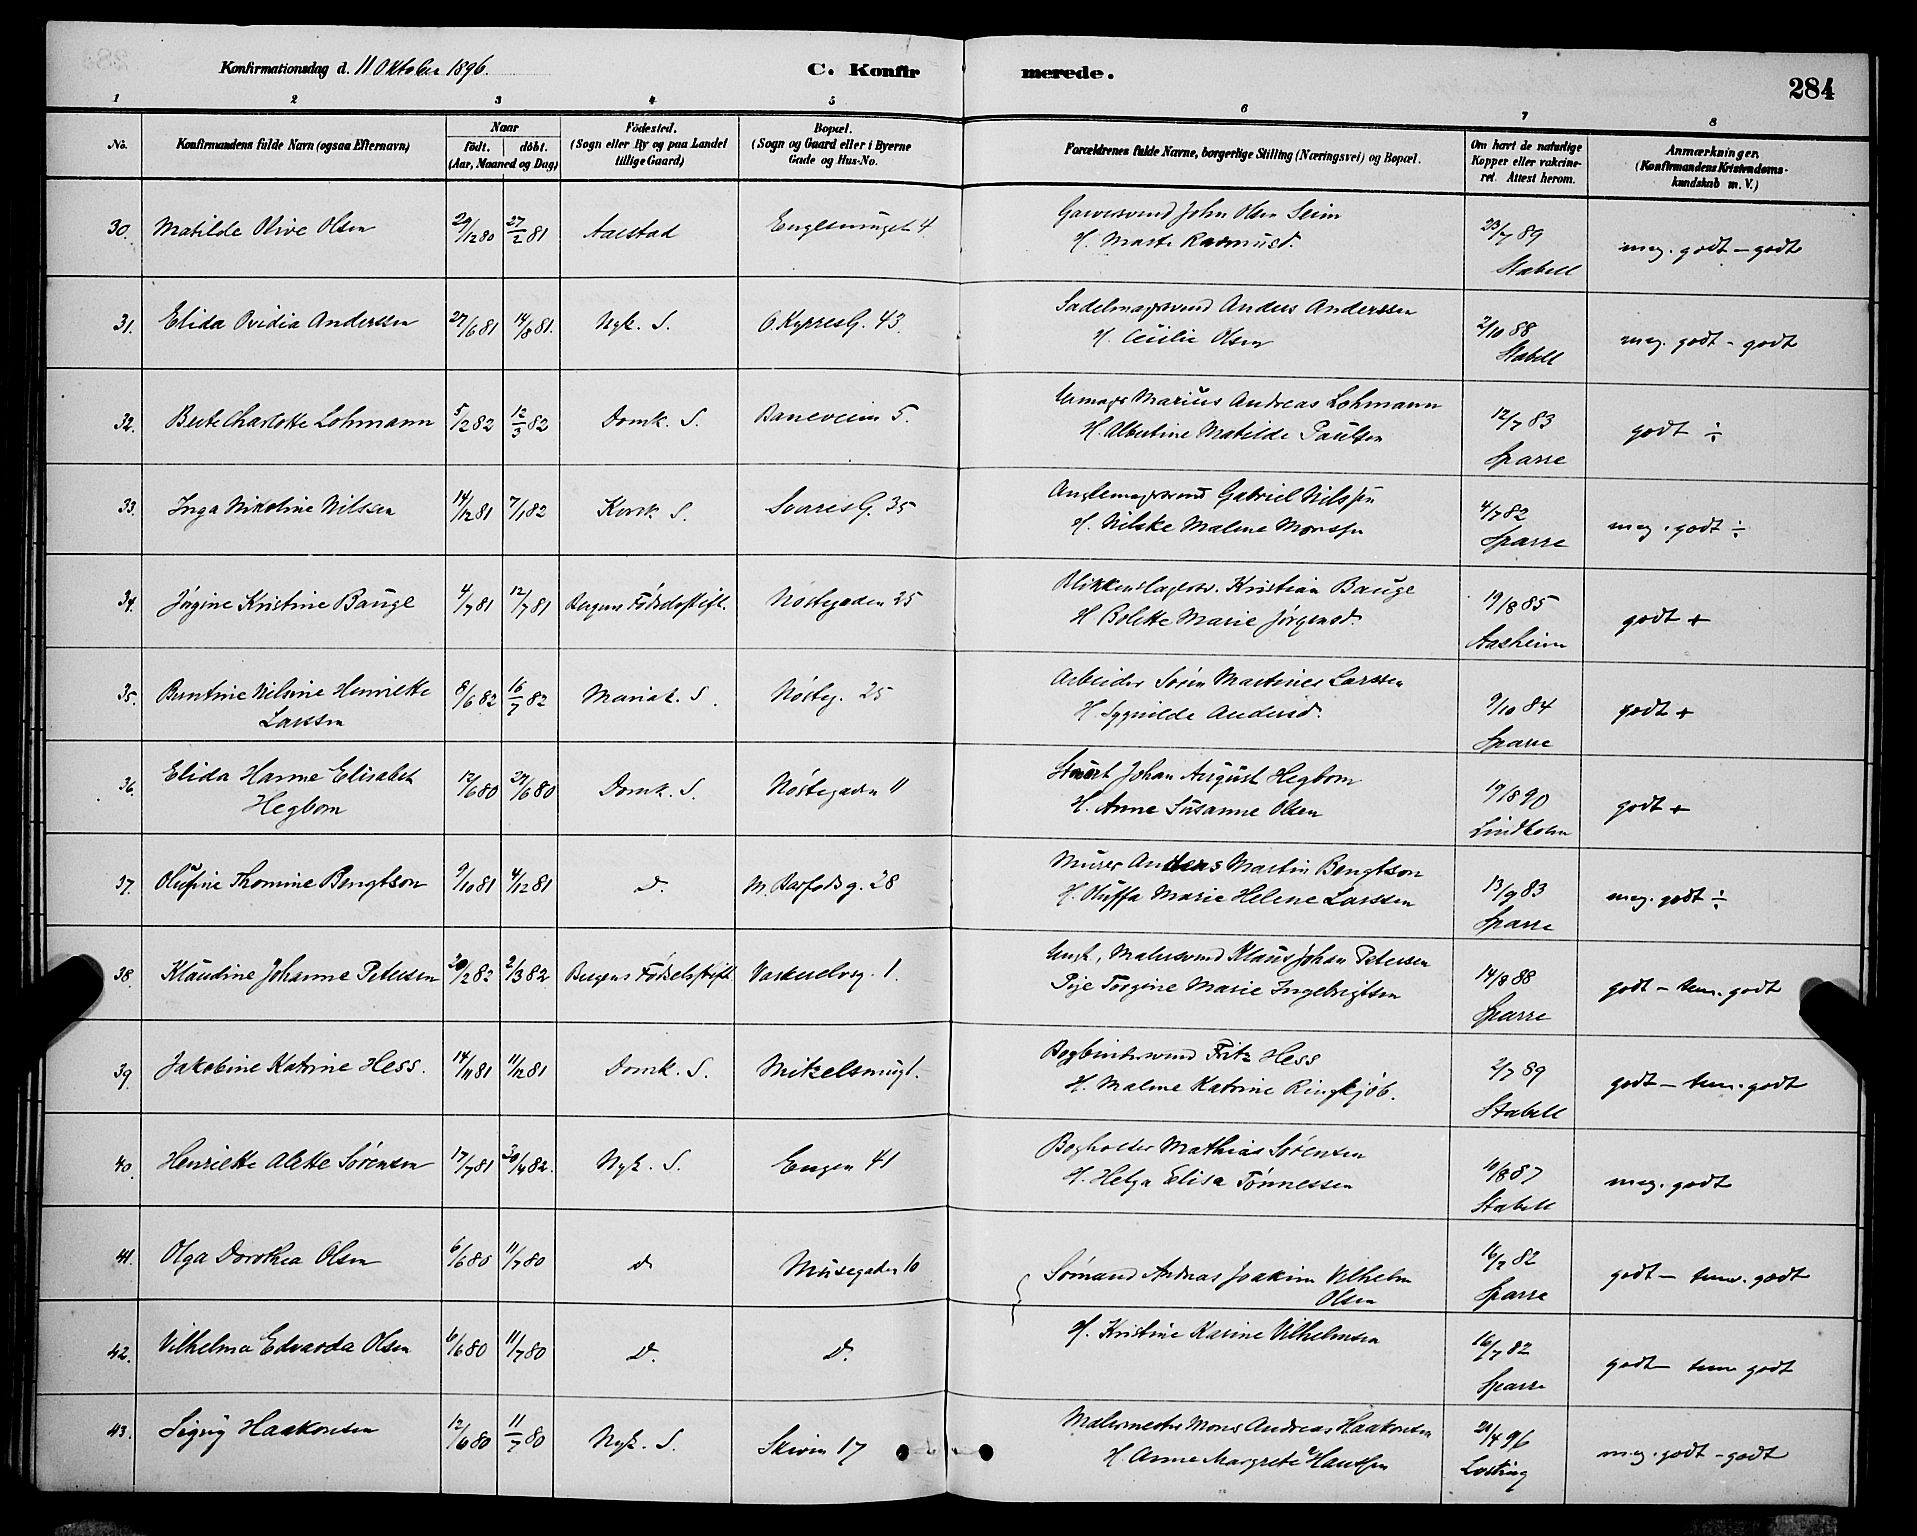 Konfirmationsdag d. 11 Oktober 1896.
C. Konfir
merede.
284
1 2 3 4 5 6 7 8
No.
Konfirmandens fulde Navn (ogsaa Efternavn)
Naar
födt. döbt.
(Aar, Maaned og Dag)
Födested.
(Sogn eller By og paa Landet
tillige Gaard)
Bopæl.
(Sogn og Gaard eller i Byerne
Gade og Hus-No.
Forældrenes fulde Navne, borgerlige Stilling (Næringsvei) og Bopæl.
Om havt de naturlige
Kopper eller vakcine-
ret. Attest herom.
Anmærkninger.
(Konfirmandens Kristendoms-
kundskab m. V.)
30. Matilde Olive Olsen 29/12 80 27/2 81 Aarstad Englsmuget 4
Garversvend John Olsen Seim
H. Marte Rasmusd.
23/7 89
Stabell
meg. godt - godt
31. Elida Ovidia Anderssen 27/6 81 14/8 81. Nyk. S. O. Kyrresg. 43.
Sadelmagersvend Anders Anderssen
H. Cecilie Olsen
2/10 88
Stabell
meg. godt - godt
32. Berte Charlotte Lohmann 5/2 82 12/3 82 Domk. S. Baneveien 5.
Urmager Marius Andreas Lohmann
H. Albertine Matilde Paulsen
12/7 83
Sparre
godt ÷
33. Inga Nikoline Nilssen 14/12 81 7/1 82 Korsk. S. Sverresg. 35
Gabriel Nilssen
H. Nilske Malene Monssen
4/7 82
Sparre
meg. godt ÷
34. Jørgine Kristine Bauge 4/7 81 12/7 81 Bergens Fødselsstift. Nøstegaden 25
Blikkenslagersv. Kristian Bauge
H. Bolette Marie Jørgensd.
19/8 85
Aasheim
godt +
35. Berntine Nilsine Henriette 8/6 82 16/7 82 Mariak. S. Nøsteg. 25
Larssen
Arbeider Søren Martines Larssen
H. Sygnilde Andersd.
9/10 84
Sparre
godt +
36. Elida Hanne Elisabet 12/6 80 27/6 80 Domk. S. Nøstegaden 11
Hegbom
Johan August Hegbom
H. Anne Susanne Olsen
19/8 90
Lindholm
godt +
37. Olufine Thomine Bengtson 9/10 81 4/12 81 D. M. Barfodsg. 28
Murer Anders Martin Bengtson
H. Oluffa Marie Helene Larssen
13/9 83
Sparre
meg. godt ÷
38. Klaudine Johanne Petersen 20/2 82 2/3 82 Bergens Fødselsstift. 1.
Ungk. Malersvend Klaus Johan Petersen
Pige Torgine Marie Ingebrigtsen
14/8 88
Sparre
godt - tem. godt
39. Jakobine Katrine Hess. 14/11 81 11/12 81 Domk. S. Mitzelsmugt.
Bogbindersvend Fritz Hess
H. Malene Katrine Ringkjøb.
2/7 89
Stabell
godt - tem. godt
40. Henriette Alette Sørensen 17/7 81 30/4 82. Nyk. S. Engen 41
Bogholder Mathias Sørensen
H. Helga Elisa Tønnessen
10/8 87
Stabell
meg. godt
41. Olga Dorothea Olsen 6/6 80 11/7 80 D. Musegaden 10
Sømand Andreas Joakim Vilhelm
Olsen
16/7 82
Sparre
godt - tem. godt
42. Vilhelma Edvarda Olsen 6/6 80 11/7 80 D. D.
H. Kristine Karine Vilhelmsen
16/7 82
Sparre
godt - tem godt
43. Sigrig Haakonsen 12/6 80 11/7 80 Nyk. S. Skiven 17
Malermester Mons Andreas Haakonsen
H. Anne Margrete Hanssen
21/4 96
Lasting
meg. godt - godt